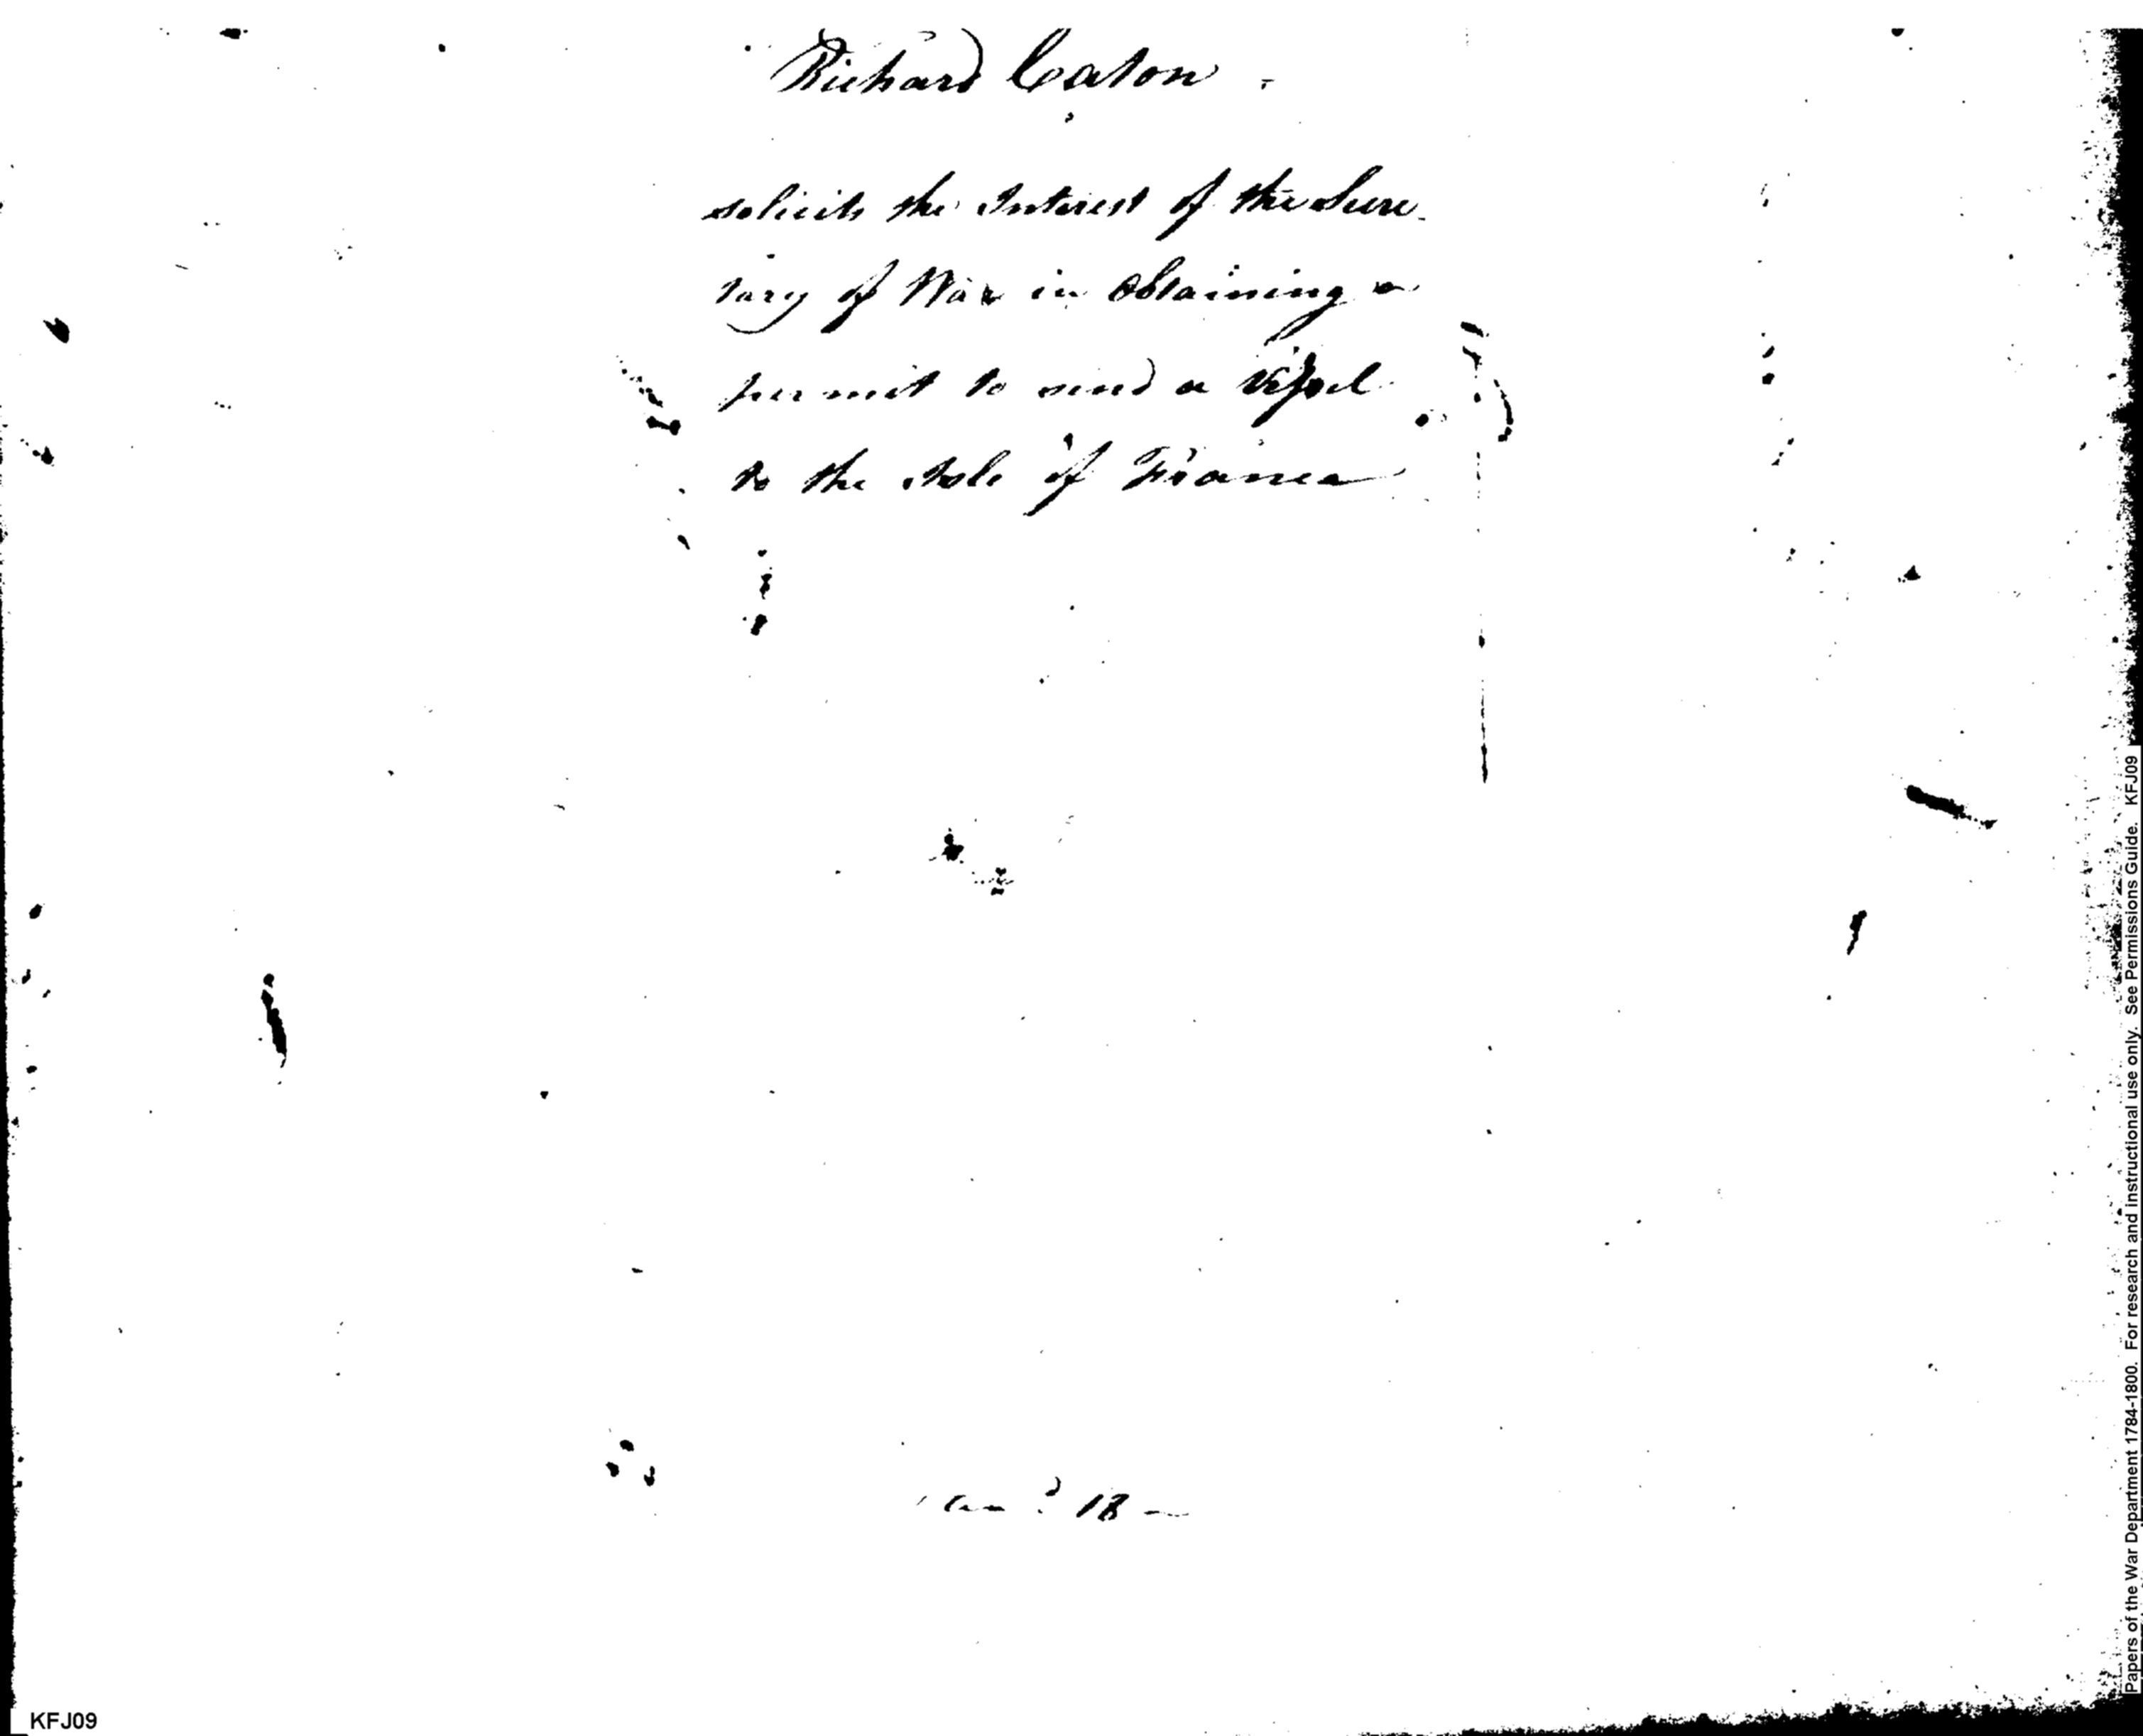 Richard Caton
solicits the Interest of the Secre-
tary of War in obtaining a
permit to send a vessel
to the Isle of France
18
KFJ09
Papers of the War Department 1784-1800. For research and instructional use only. See Permissions Guide. KFJ09